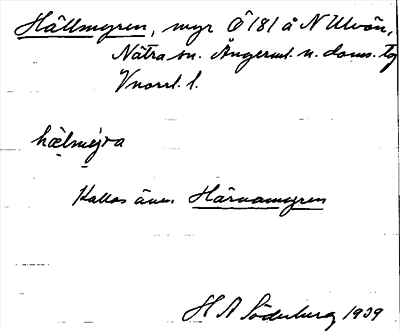 Hällmyren, myr Ö 181 å N Ulvön,
Nätra sn. Ångerml. n. doms. tg
Vnorrl. l.
hælmy̱ra
Kallas även Härnamyren
H A Söderberg 1939